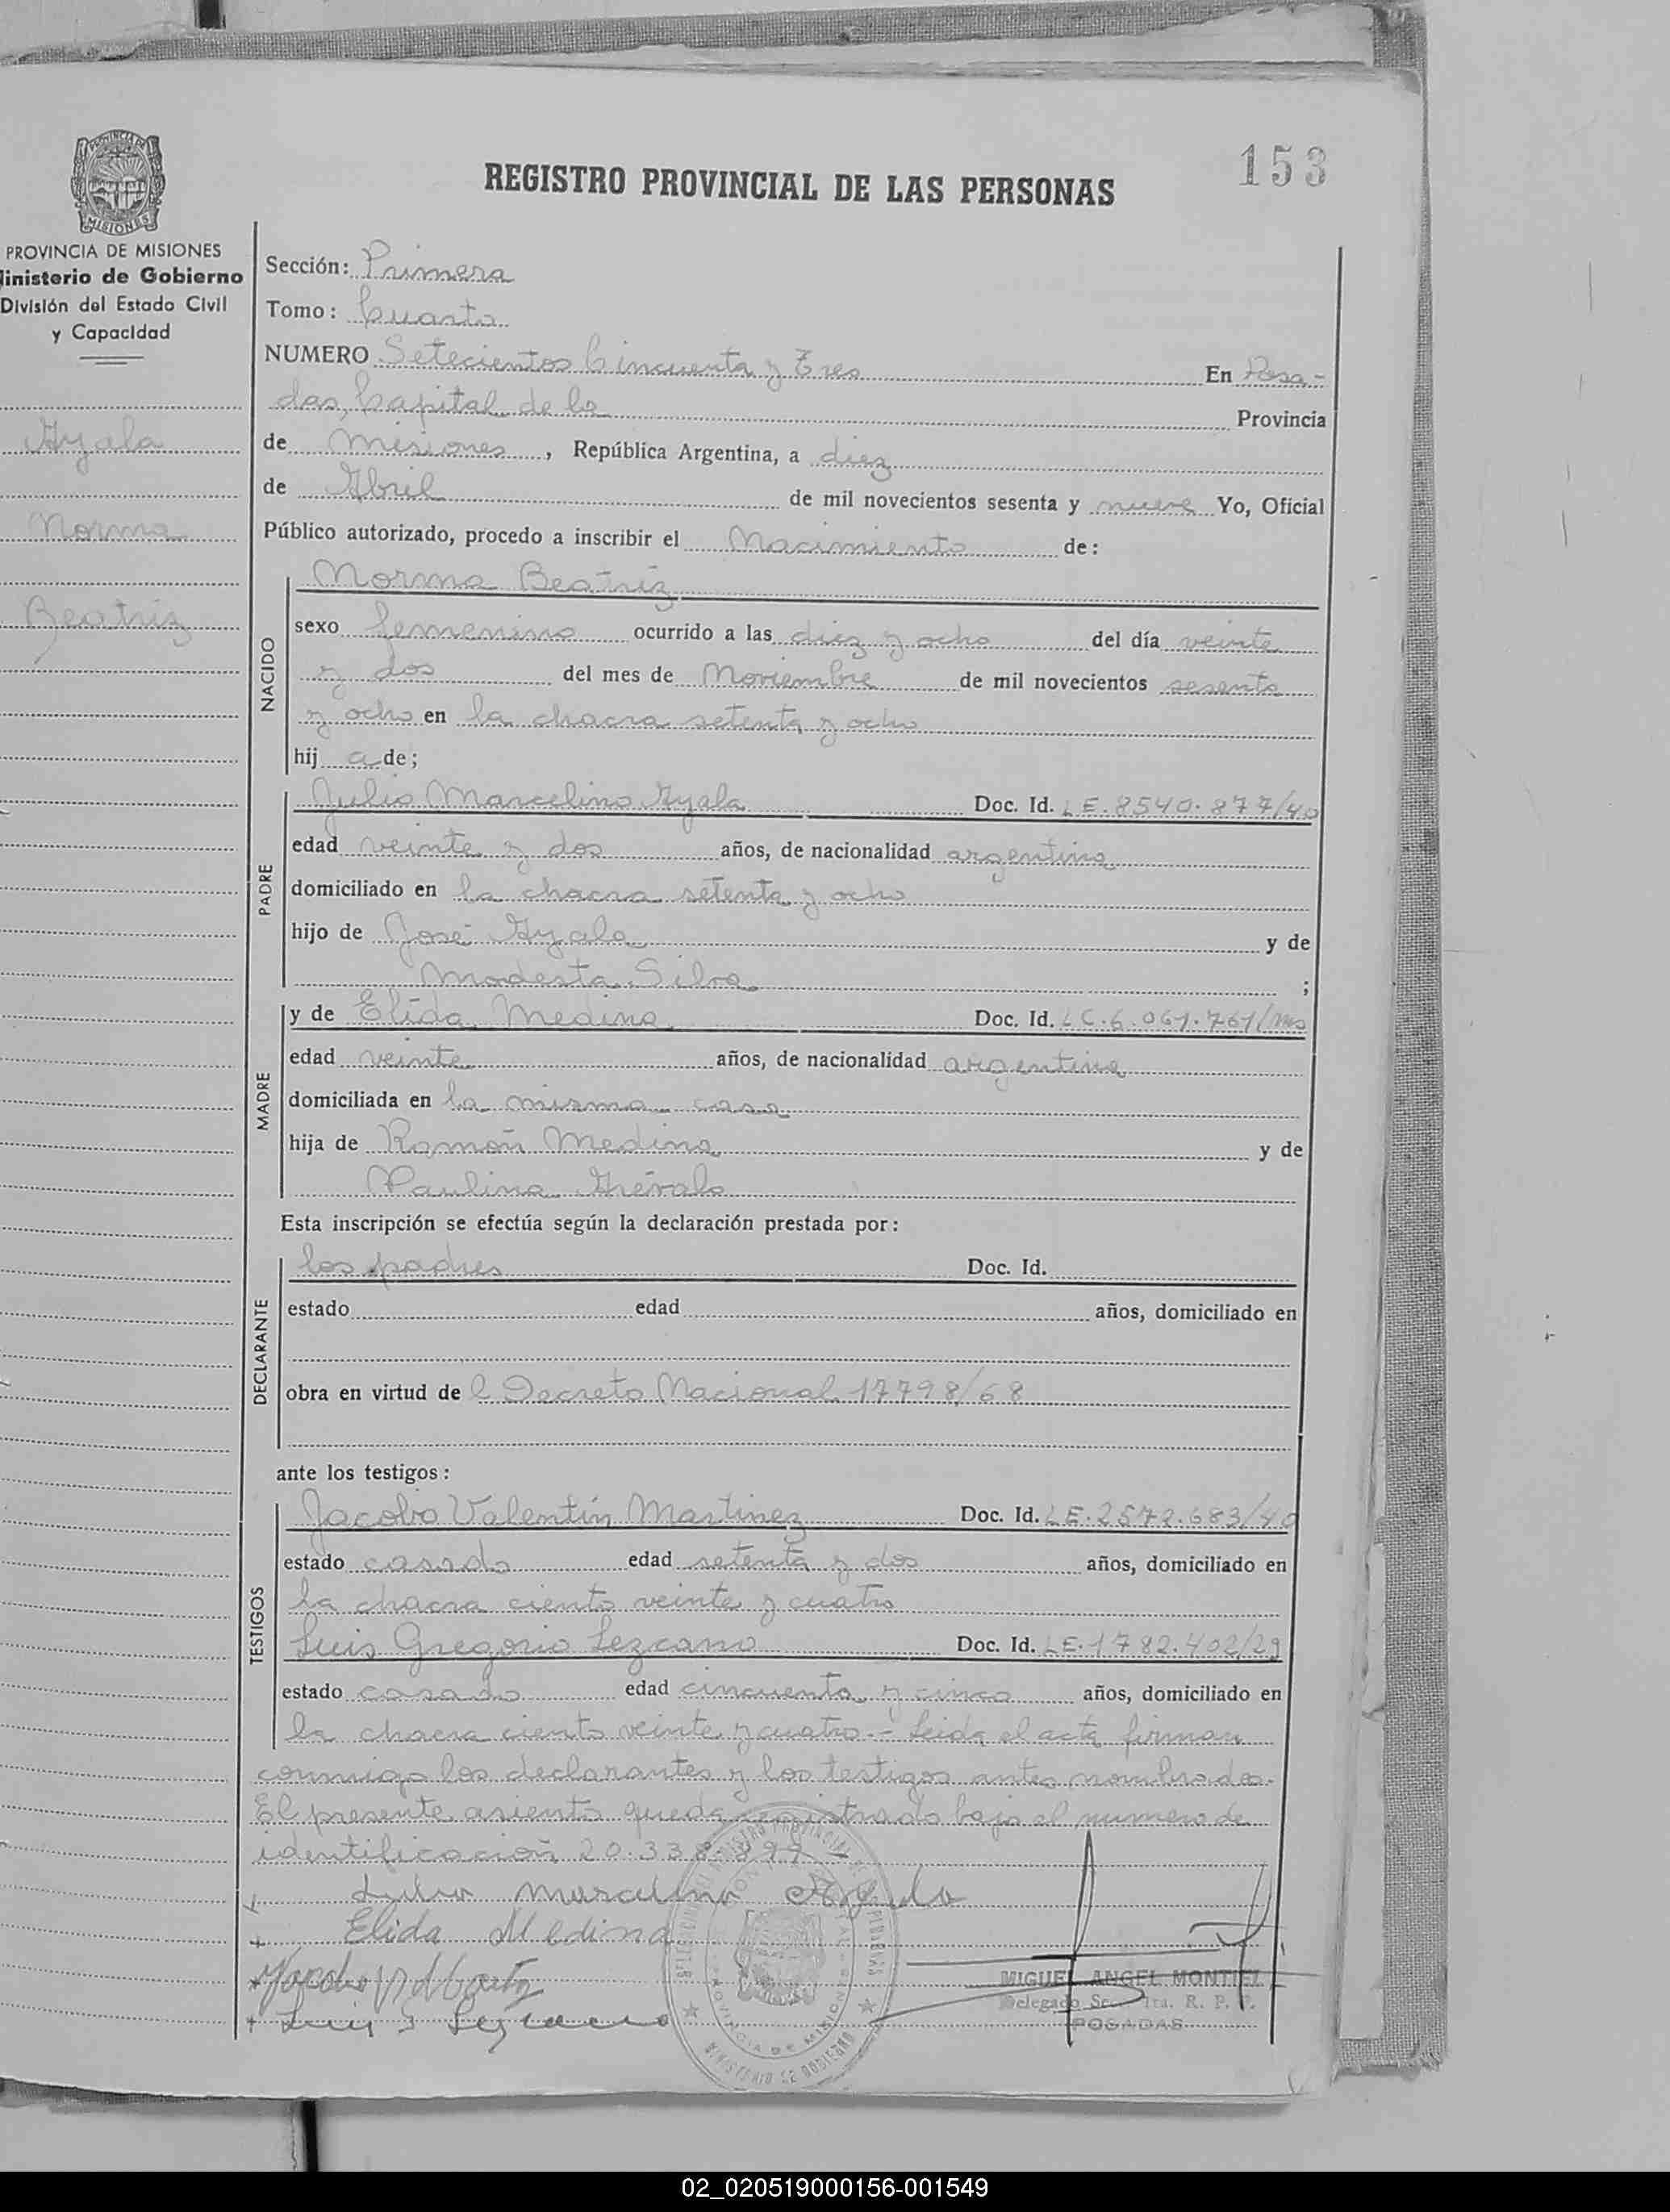 153
REGISTRO PROVINCIAL DE LAS PERSONAS
PROVINCIA DE MISIONES
Ministerio de Gobierno
División del Estado Civil
y Capacidad
Ayala
Norma
Beatriz
Sección: Primera
Tomo: Cuarto
NUMERO Setecientos Cincuenta y Tres En Posa-
das, Capital de la Provincia
de Misiones, República Argentina, a diez
de Abril de mil novecientos sesenta y nueve Yo, Oficial
Público autorizado, procedo a inscribir el Nacimiento de:
NACIDO
Norma Beatriz
sexo femenino ocurrido a las diez y ocho del día veinte
y dos del mes de Noviembre de mil novecientos sesenta
y ocho en la chacra setenta y ocho
hij a de;
PADRE
Julio Marcelino Ayala Doc. Id. LE. 8540.877/40
edad veinte y dos años, de nacionalidad argentina
domiciliado en la chacra setenta y ocho
hijo de José Ayala y de
Modesta Silva ;
MADRE
y de Elida Medina Doc. Id. LC. 6.061.761/Mnes
edad veinte años, de nacionalidad argentina
domiciliada en la misma casa
hija de Ramón Medina y de
Paulina Arévalo
Esta inscripción se efectúa según la declaración prestada por:
DECLARANTE
los padres Doc. Id.
estado edad años, domiciliado en
obra en virtud de l Decreto Nacional 17798/68
ante los testigos:
TESTIGOS
Jacobo Valentín Martinez Doc. Id. LE. 2572.683/40
estado casado edad setenta y dos años, domiciliado en
la chacra ciento veinte y cuatro
Luis Gregorio Lezcano Doc. Id. LE. 1782.402/29
estado casado edad cincuenta y cinco años, domiciliado en
la chacra ciento veinte y cuatro.- Leida el acta firman
conmigo los declarantes y los testigos antes nombrados.
El presente asiento queda registrado bajo el numero de
identificación 20.338.899
Julio Marcelino Ayala
Elida Medina
Luis G Lezcano
MIGUEL ANGEL MONTIEL
Delegado R. P. P.
POSADAS
PROVINCIA DE MISIONES
MINISTERIO DE GOBIERNO
02_020519000156-001549